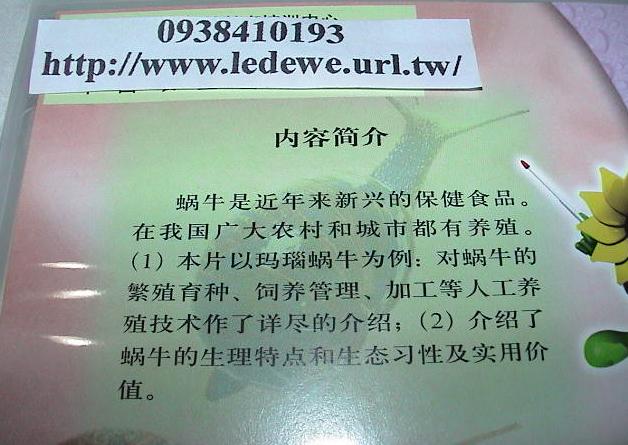 0938410193
http://www.ledewe.url.tw/
内容简介
蜗牛是近年来新兴的保健食品。
在我国广大农村和城市都有养殖。
(1) 本片以玛瑙蜗牛为例：对蜗牛的
繁殖育种、饲养管理、加工等人工养
殖技术作了详尽的介绍；(2) 介绍了
蜗牛的生理特点和生态习性及实用价
值。